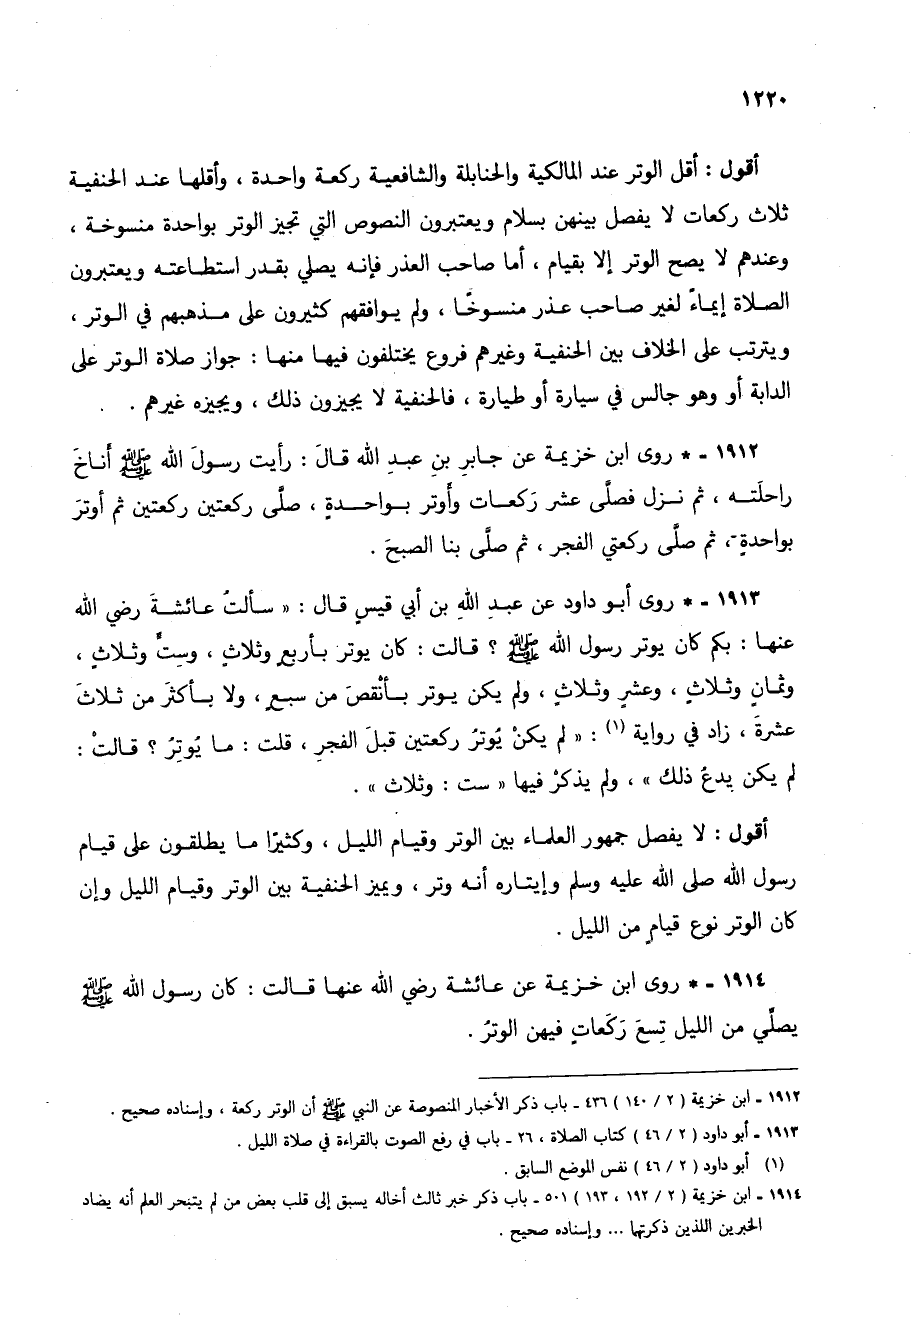 ١٢٢٠
أقول : أقل الوتر عند المالكية والحنابلة والشافعيـة ركعة واحـدة ، وأقلهـا عنـد الحنفيـة
ثلاث ركعات لا يفصل بينهن بسلام ويعتبرون النصوص التي تجيز الوتر بواحدة منسوخـة ،
وعندهم لا يصح الوتر إلا بقيام ، أما صاحب العذر فإنـه يصلي بقـدر استطـاعتـه ويعتبرون
الصلاة إيماءً لغير صـاحب عـذر منسـوخًـا ، ولم يـوافقهم كثيرون على مـذهبهم في الـوتر ،
ويترتب على الخلاف بين الحنفيـة وغيرهم فروع يختلفون فيهـا منهـا : جواز صلاة الـوتر على
الدابة أو وهو جالس في سيارة أو طيارة ، فالحنفية لا يجيزون ذلك ، ويجيزه غيرهم .
١٩١٢ - * روى ابن خزيمـة عن جـابرِ بنِ عبـدِ الله قـالَ : رأيت رسـولَ الله ﷺ أنـاخَ
راحلَتَـه ، ثم نـزل فصلَّى عشر رَكعـات وأوتر بـواحـدةٍ ، صلَّى ركعتين ركعتين ثم أوترَ
بواحدةٍ ، ثم صلَّى ركعتي الفجر ، ثم صلَّى بنا الصبحَ .
١٩١٣ - * روى أبـو داود عن عبـدِ اللهِ بن أبي قيسٍ قال : « سـألتُ عـائشـةَ رضي الله
عنهـا : بكم كان يوتر رسول الله ﷺ ؟ قـالت : كان يوتر بـأربعٍ وثلاثٍ ، وستٍّ وثـلاثٍ ،
وثمـانٍ وثـلاثٍ ، وعشرٍ وثلاثٍ ، ولم يكن يـوتر بـأنْقصَ من سبـعٍ ، ولا بـأكثرَ من ثـلاثَ
عشرةَ ، زاد في رواية (١) : « لم يكنْ يُوترُ ركعتين قبلَ الفجرِ ، قلت : مـا يُوتِرُ ؟ قـالتْ :
لم يكن يدعُ ذلك » ، ولم يذكرْ فيها « ست : وثلاث » .
أقول : لا يفصل جمهور العلمـاء بين الوتر وقيـام الليـل ، وكثيرًا مـا يطلقـون على قيـام
رسول الله صلى الله عليه وسلم وإيتـاره أنـه وتر ، ويميز الحنفيـة بين الوتر وقيـام الليل وإن
كان الوتر نوع قيامٍ من الليل .
١٩١٤ - * روى ابن خـزيمـة عن عـائشـة رضي الله عنهـا قـالت : كان رسـول الله ﷺ
يصلِّي من الليل تِسعَ رَكَعاتٍ فيهن الوترُ .
١٩١٢ - ابن خزيمة ( ٢ / ١٤٠ ) ٤٣٦ - باب ذكر الأخبار المنصوصة عن النبي ﷺ أن الوتر ركعة ، وإسناده صحيح .
١٩١٣ - أبو داود ( ٢ / ٤٦ ) كتاب الصلاة ، ٢٦ - باب في رفع الصوت بالقراءة في صلاة الليل .
(١) أبو داود ( ٢ / ٤٦ ) نفس الموضع السابق .
١٩١٤ - ابن خزيمة ( ٢ / ١٩٢ ، ١٩٣ ) ٥٠١ - باب ذكر خبر ثالث أخاله يسبق إلى قلب بعض من لم يتبحر العلم أنه يضاد
الخبرين اللذين ذكرتها ... وإسناده صحيح .